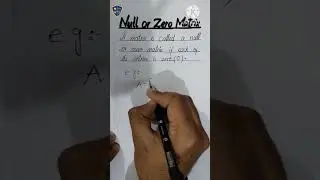 Null or Zero Matrix
A matrix is called a null
or zero matrix if each of
its entries is zero (0):-
e.g:-
A =
e g :-
A